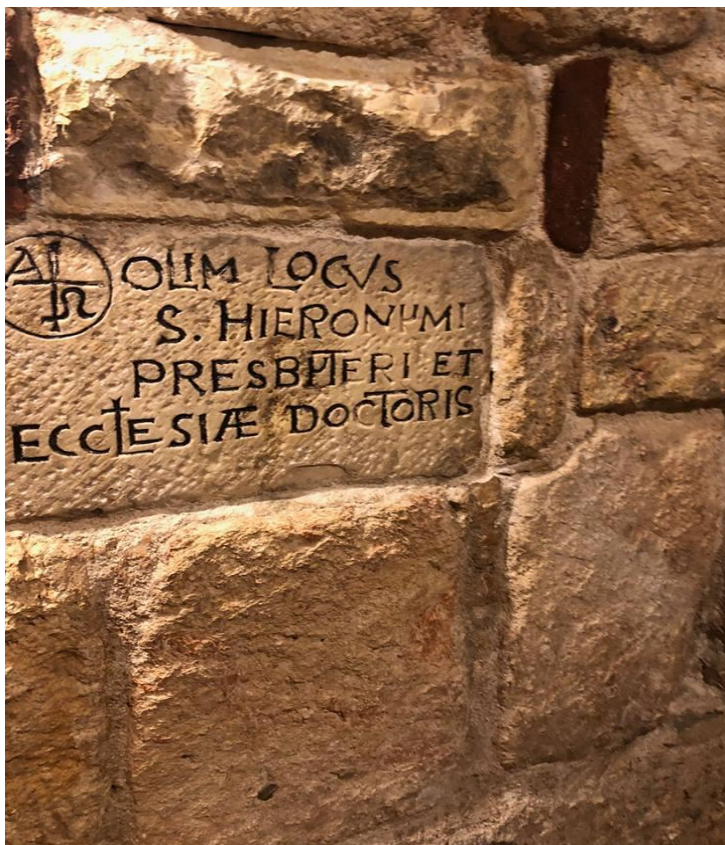 A Ω
OLIM LOCVS
S. HIERONYMI
PRESBYTERI ET
ECCLESIÆ DOCTORIS